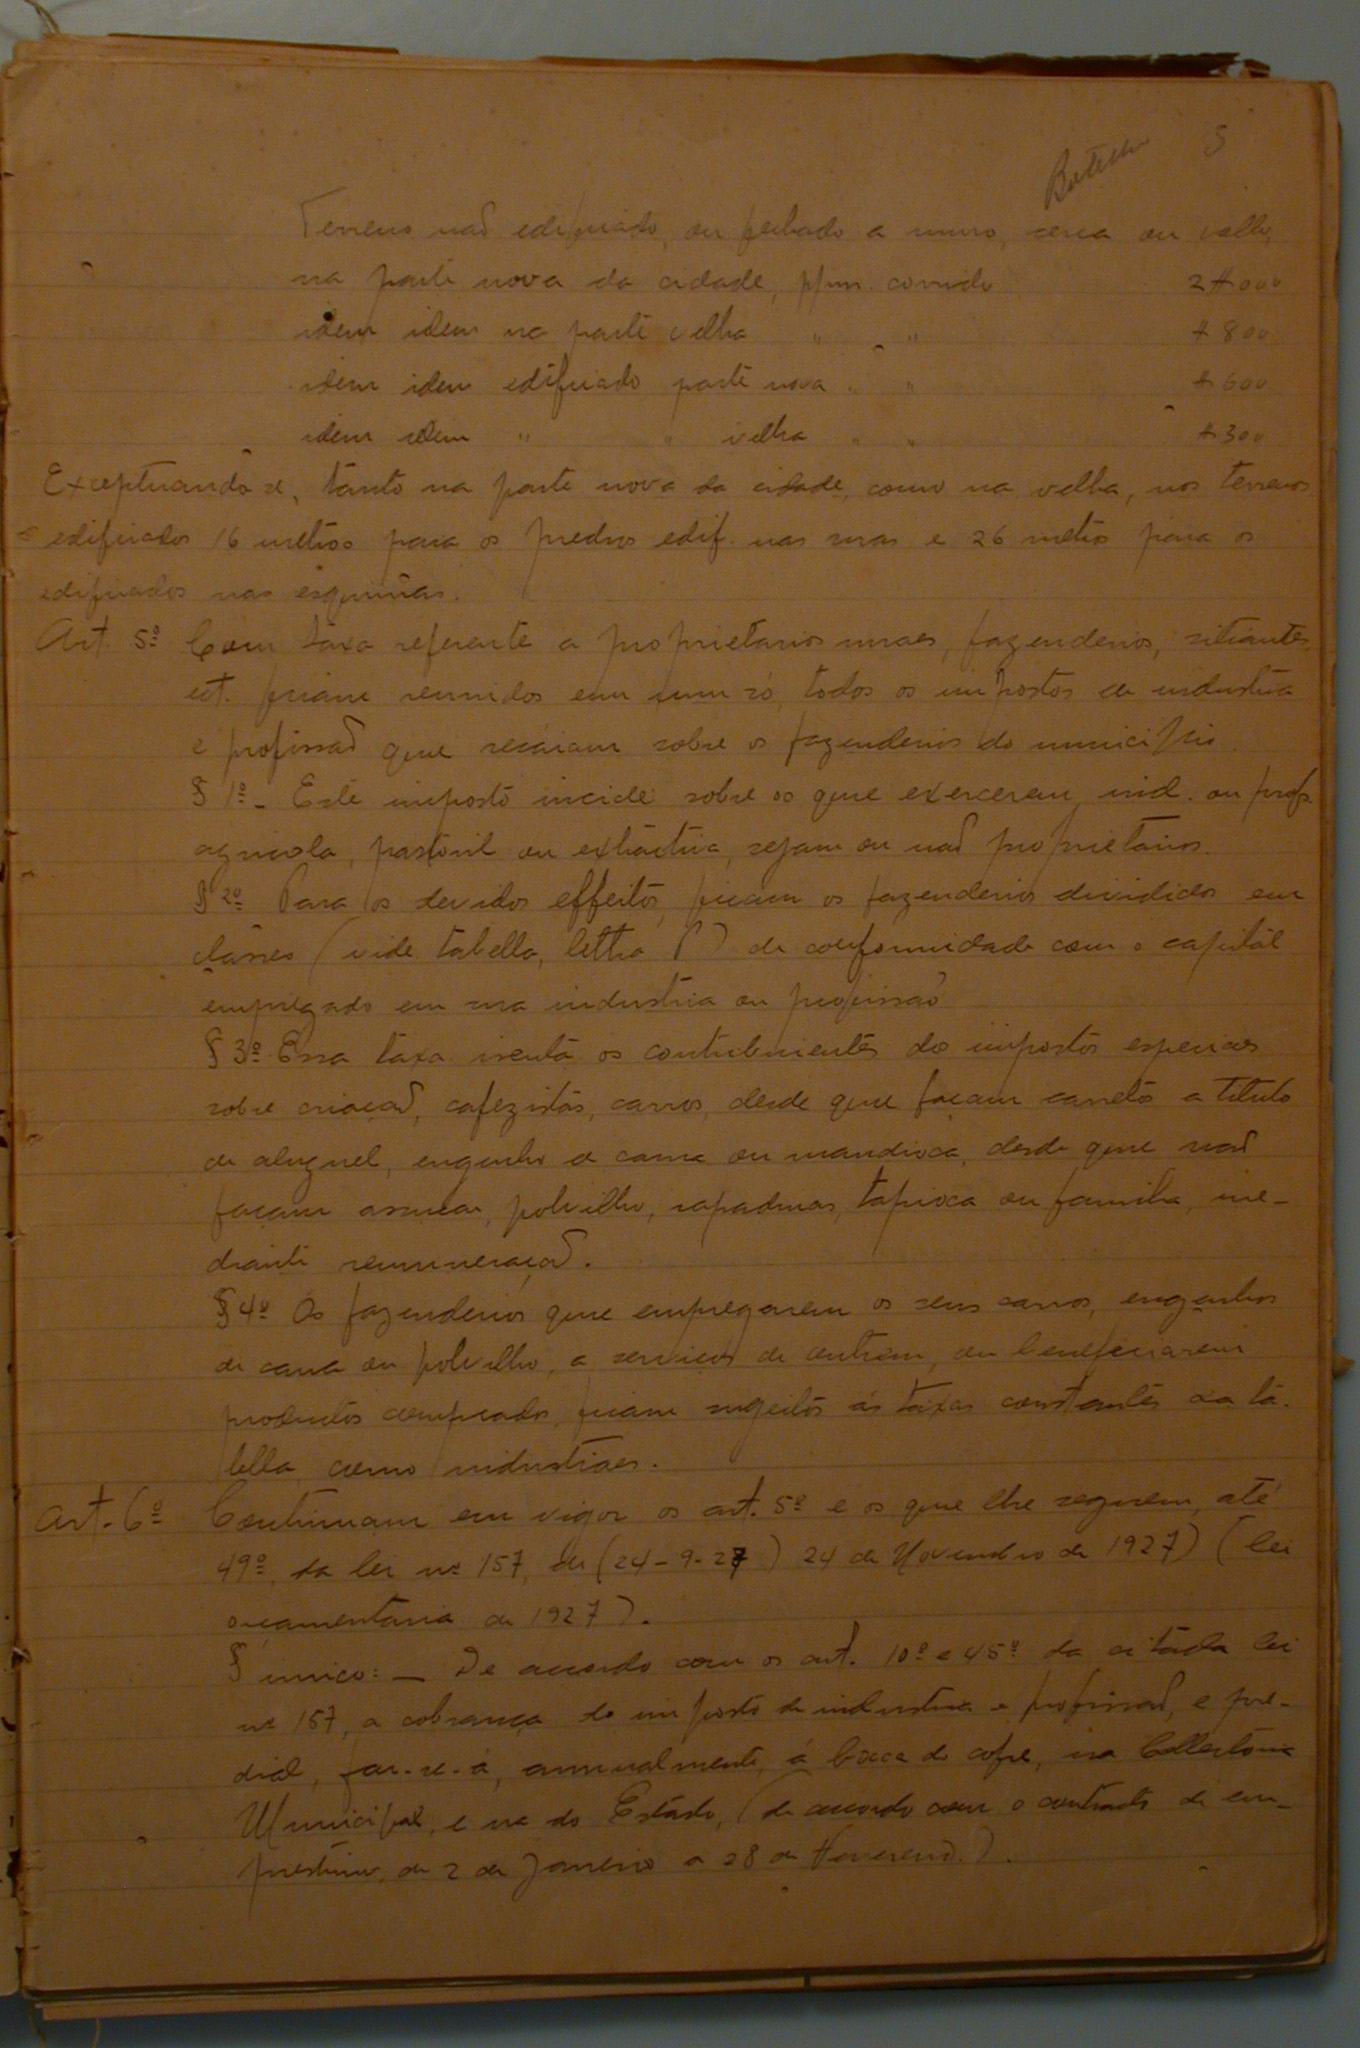 5
Terreno naõ edificado, ou fechado a muro, cerca ou vallo,
na parte nova da cidade, p/m. corrido 2$000
idem idem na parte velha " " $800
idem idem edificado parte nova " " $600
idem idem " " velha " " $300
Exceptuando-se, tanto na parte nova da cidade, como na velha, nos terrenos
edificados 16 metros para os predios edif. nas ruas e 26 metros para os
edificados nas esquinas.
Art. 5º Com taxa referente a proprietarios ruraes, fazendeiros, sitiantes
ect. ficam reunidos em um só, todos os impostos de industria
e profissaõ que recaiam sobre os fazendeiros do municipio.
§ 1º - Este imposto incide sobre os que exercerem ind. ou prof.
agricola, pastoril ou extractiva, sejam ou naõ proprietarios.
§ 2º Para os devidos effeitos, ficam os fazendeiros divididos em
classes (vide tabella, lettra P) de conformidade com o capital
empregado em sua industria ou profissaõ
§ 3º Essa taxa isenta os contribuientes dos impostos especiaes
sobre criaçaõ, cafezistas, carros, desde que façam carretos a titulo
de aluguel, engenho de canna ou mandioca, desde que naõ
façam assucar, polvilho, rapaduras, tapioca ou farinha, me-
diante remuneraçaõ.
§ 4º Os fazendeiros que empregarem os seus carros, engenhos
de cana ou polvilho, a serviços de outrem, ou beneficiarem
productos comprados, ficam sugeitos ás taxas constantes da ta-
bella como industriaes.
Art. 6º Continuam em vigor os art. 5º e os que lhe seguem, até
49º, da lei nº 157, de (24-9-27) 24 de Novembro de 1927) (lei
orçamentaria de 1927).
§ unico: - De accordo com os art. 10º e 45º da citada lei
nº 157, a cobrança do imposto de industria e profissaõ, e pre-
dial, far-se-á, annualmente, á bocca do cofre, na Collectoria
Municipal, e na do Estado, (de accordo com o contracto de em-
prestimo, de 2 de Janeiro a 28 de Fevereiro.).